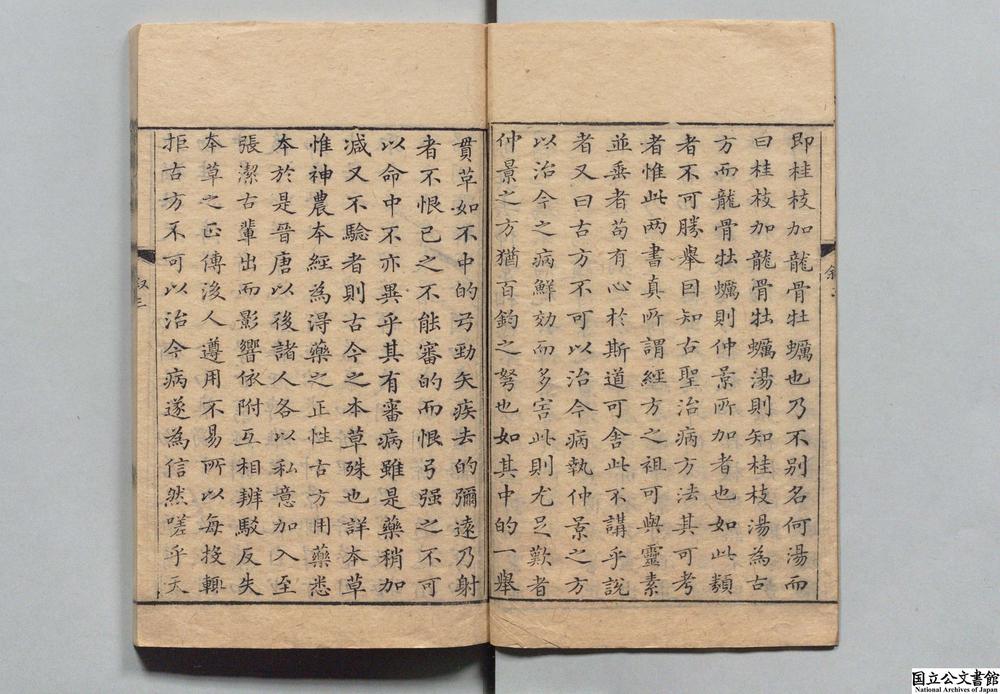 即桂枝加龍骨牡蠣也乃不别名何湯而
曰桂枝加龍骨牡蠣湯則知桂枝湯為古
方而龍骨牡蠣則仲景所加者也如此類
者不可勝舉曰知古聖治病方法其可考
者惟此两書真所謂經方之祖可與靈素
並垂者苟有心於斯道可舍此不講乎說
者又曰古方不可以治今病執仲景之方
以治今之病鮮効而多害此則尤足歎者
仲景之方猶百鈞之弩也如其中的一舉
貫革如不中的弓勁矢疾去的彌遠乃射
者不恨已之不能審的而恨弓强之不可
以命中不亦異乎其有審病雖是藥稍加
减又不驗者則古今之本草殊也詳本草
惟神農本經為得藥之正性古方用藥悉
本於是晉唐以後諸人各以私意加入至
張潔古輩出而影響依附互相辨駁反失
本草之正傳後人遵用不易所以每投輒
拒古方不可以治今病遂為信然嗟乎天
叙三